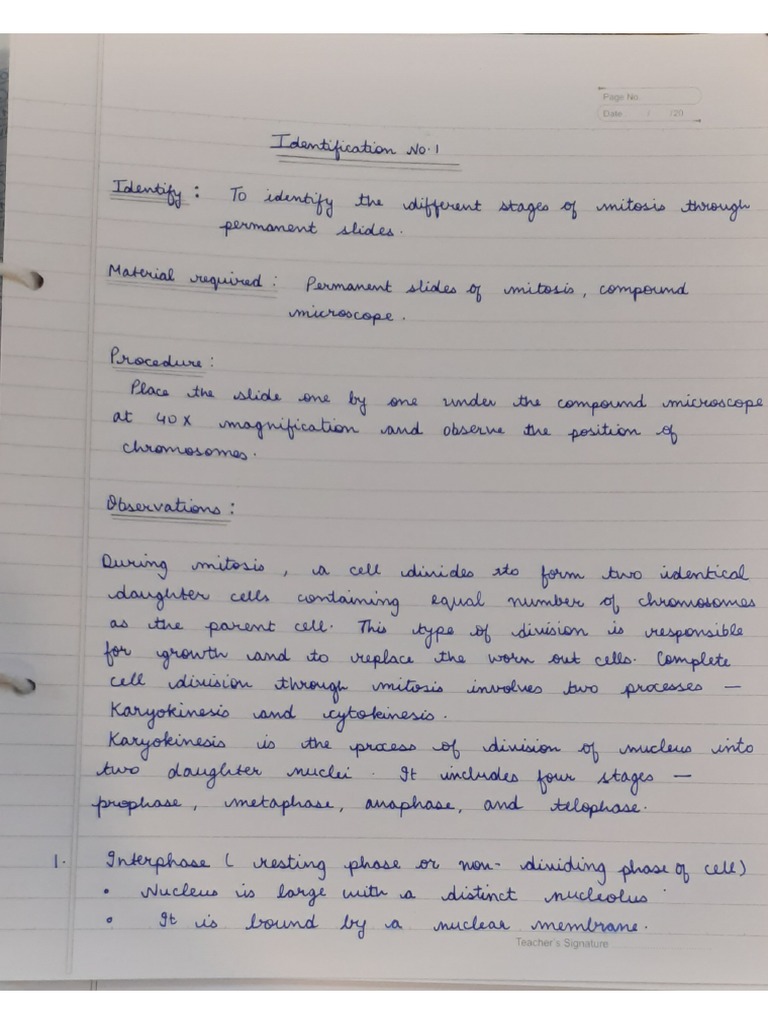 Page No.
Date / /20
Identification No. 1
Identify : To identify the different stages of mitosis through
permanent slides.
Material required : Permanent slides of mitosis, compound
microscope.
Procedure :
Place the slide one by one under the compound microscope
at 40x magnification and observe the position of
chromosomes.
Observations :
During mitosis, a cell divides to form two identical
daughter cells containing equal number of chromosomes
as the parent cell. This type of division is responsible
for growth and to replace the worn out cells. Complete
cell division through mitosis involves two processes —
Karyokinesis and cytokinesis.
Karyokinesis is the process of division of nucleus into
two daughter nuclei. It includes four stages —
prophase, metaphase, anaphase, and telophase.
1. Interphase ( resting phase or non-dividing phase of cell)
• Nucleus is large with a distinct nucleolus
• It is bound by a nuclear membrane.
Teacher's Signature